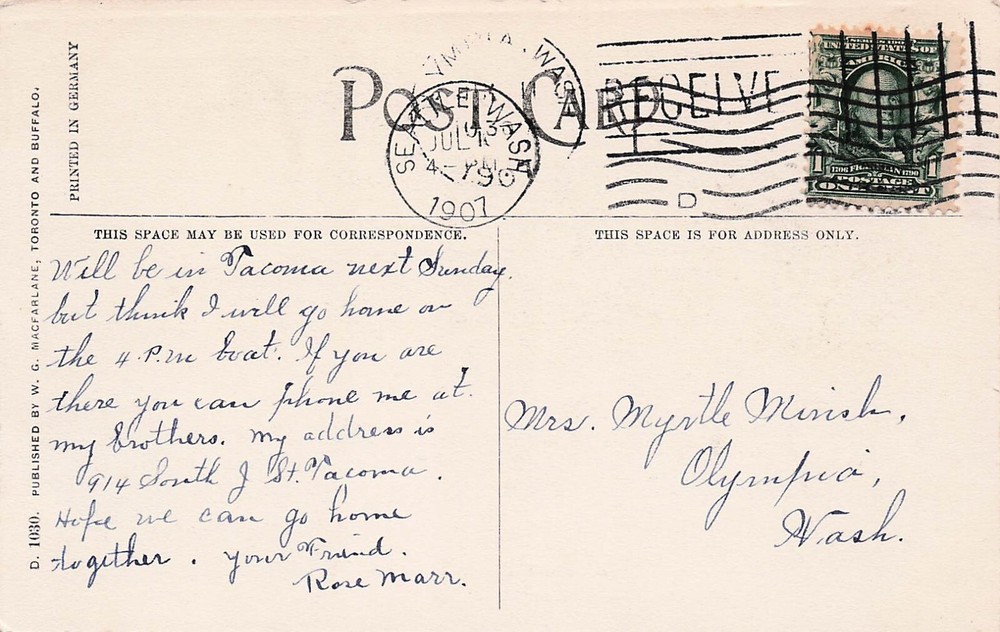 PRINTED IN GERMANY
D. 1030. PUBLISHED BY W. G. MACFARLANE, TORONTO AND BUFFALO.
POST CARD
OLYMPIA, WASH.
RECEIVED
SEATTLE, WASH.
JUL
4-PM
1907
D
SERIES 1902
UNITED STATES OF
AMERICA
1 1
1706 FRANKLIN 1790
POSTAGE
ONE CENT
THIS SPACE MAY BE USED FOR CORRESPONDENCE.
THIS SPACE IS FOR ADDRESS ONLY.
Will be in Tacoma next Sunday.
but think I will go home on
the 4 P.m boat. If you are
there you can phone me at.
my brothers. my address is
914 South J St. Tacoma.
Hope we can go home
together. your Friend.
Rose Marr.
Mrs. Myrtle
Olympia,
Wash.